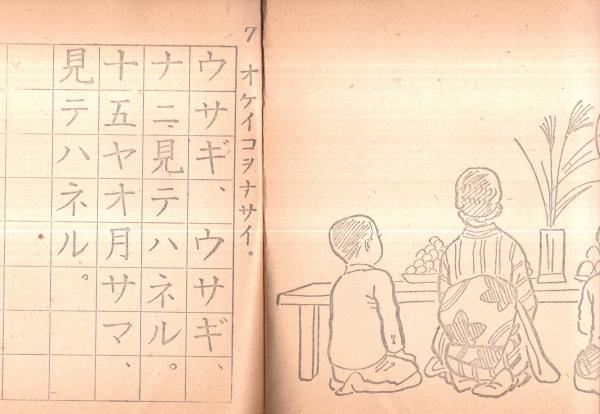 7 オケイコヲナサイ。
ウサギ、ウサギ、
ナニ見テハネル。
十五ヤオ月サマ、
見テハネル。